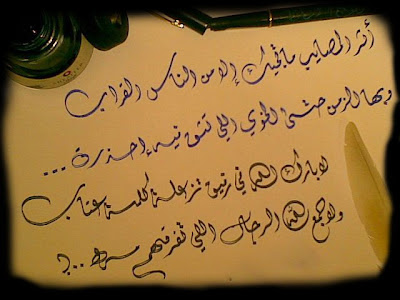 أثر المصايب ماتجيك إلا من الناس القراب
وبهالزمن حتى الخوي اللي تثق فيه إحذره ...
لابارك الله في رفيق تزعله كلمة عتاب
ولاجمع الله الرجال اللي تفرقهم مره ..؟